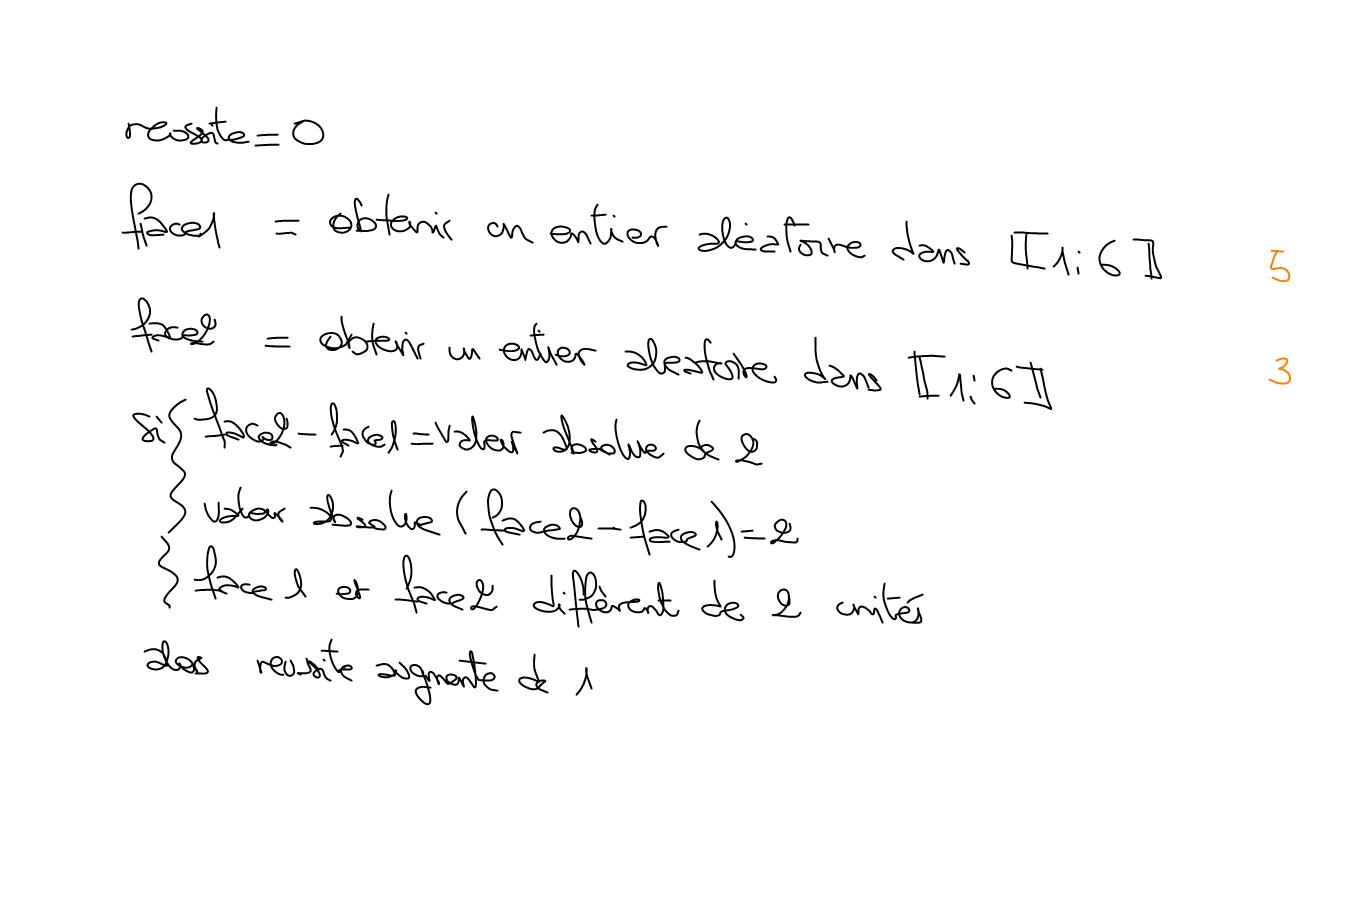 reussite = 0
face1 = obtenir un entier aléatoire dans ⟦1; 6⟧ 5
face2 = obtenir un entier aleatoire dans ⟦1; 6⟧ 3
si { face2 - face1 = valeur absolue de 2
valeur absolue (face2 - face1) = 2
} face1 et face2 diffèrent de 2 unités
alors reussite augmente de 1